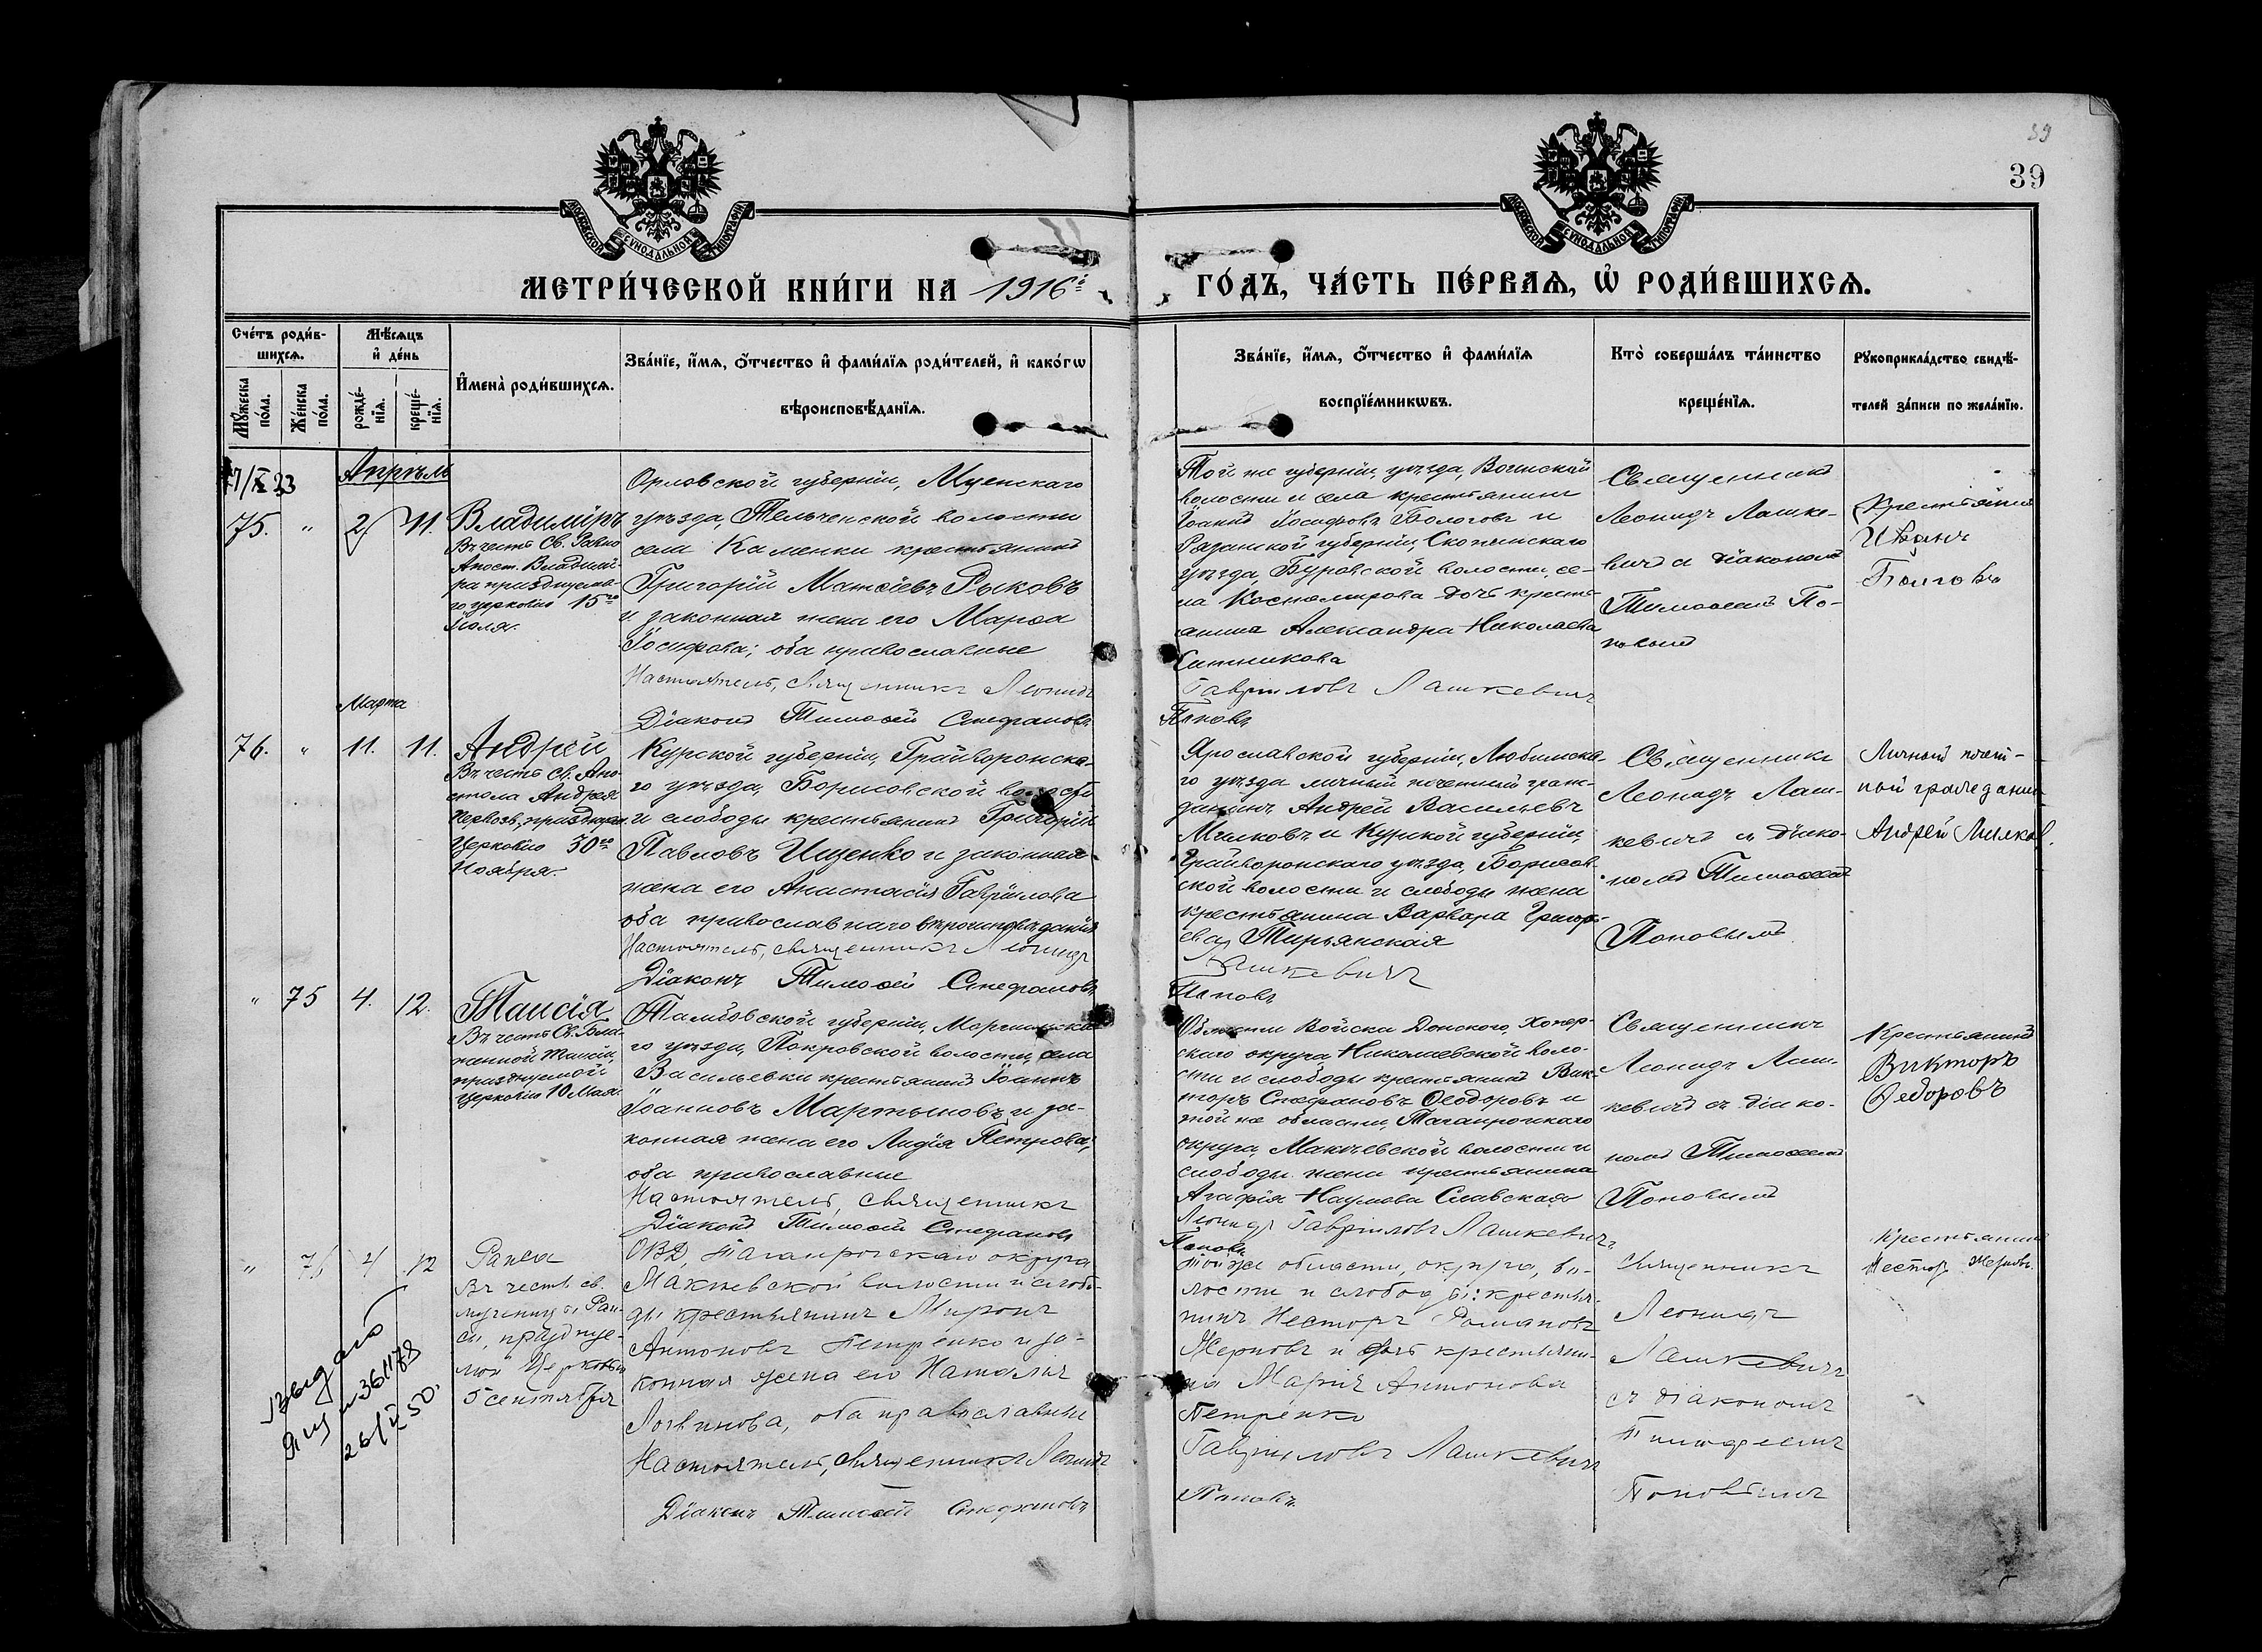 39
39
МОСКОВСКОЙ СѴНОДАЛЬНОЙ ТИПОГРАФІИ
МОСКОВСКОЙ СѴНОДАЛЬНОЙ ТИПОГРАФІИ
МЕТРИ́ЧЕСКОЙ КНИ́ГИ НА 1916й
ГО́ДЪ, ЧА́СТЬ ПЕ́РВАѦ, Ѡ҆ РОДИ́ВШИХСѦ.
Сче́тъ роди́в-
шихсѧ.
Мꙋ́жеска по́ла.
Же́нска по́ла.
Мѣ́сѧцъ
и҆ де́нь
рожде́-
нїѧ.
креще́-
нїѧ.
И҆мена̀ роди́вшихсѧ.
Зва́нїе, и҆́мѧ, ѻ҆́тчество и҆ фами́лїѧ роди́телей, и҆ како́гѡ
вѣроисповѣ́данїѧ.
Зва́нїе, и҆́мѧ, ѻ҆́тчество и҆ фами́лїѧ
воспрїе́мникѡвъ.
Кто̀ соверша́лъ та́инство
креще́нїѧ.
Рꙋкоприкла́дство свидѣ́-
телей за́писи по жела́нїю.
Апрѣль
75. " 2. 11.
Владиміръ
Въ честь Св. Равно
Апост. Владимі-
ра празднуема-
го церковію 15го
Іюля.
Орловской губерніи, Мценскаго
уѣзда, Тельченской волости
села Каменки крестьянинъ
Григорій Матѳіевъ Рыковъ
и законная жена его Марѳа
Іосифова; оба православные
Настоятель, священникъ Леонидъ
Діаконъ Тимоѳей Стефановъ
Той же губерніи, уѣзда, Воинской
волости и села крестьянинъ
Іоаннъ Іосифовъ Бологовъ и
Рязанской губерніи, Скопинскаго
уѣзда, Буровской волости, се-
ла дочь кресть-
янина Александра Николаева
Ситникова
Гавриловъ Лашкевичъ
Поповъ
Священникъ
Леонидъ Лашке-
вичъ с діакономъ
Тимоѳеемъ По-
повымъ
Крестьянинъ
Иванъ
Марта
76. " 11. 11.
Андрей
Въ честь св. Апо-
стола Андрея
Первозв., празднуем.
Церковію 30го
Ноября.
Курской губерніи, Грайворонска-
го уѣзда, Борисовской волости
и слободы крестьянинъ Григорій
Павловъ Ищенко и законная
жена его Анастасія Гавріилова
оба православнаго вѣроисповѣданія
Настоятель, священникъ Леонидъ
Діаконъ Тимоѳей Стефановъ
Ярославской губерніи, Любимска-
го уѣзда личный почетный граж-
данинъ Андрей Васильевъ
и Курской губерніи,
Грайворонскаго уѣзда, Борисов-
ской волости и слободы жена
крестьянина Варвара Григорь-
ева Тирьянская
Лашкевичъ
Поповъ
Священникъ
Леонидъ Лаш-
кевичъ съ діако-
номъ Тимоѳеемъ
Поповымъ
Личный почет-
ный гражданинъ
Андрей
" 75 4. 12.
Таисія
Въ честь Св. Бла-
женной Таисіи,
празднуемой
церковію 10 Мая.
Тамбовской губерніи, Моршанска-
го уѣзда, Покровской волости, села
Васильевки крестьянинъ Іоаннъ
Іоанновъ Мартыновъ и за-
конная жена его Лидія Петрова;
оба православные
Настоятель, священникъ
Діаконъ Тимоѳей Стефановъ
Области Войска Донского, Хопер-
скаго округа, Николаевской воло-
сти и слободы крестьянинъ Вик-
торъ Стефановъ Ѳеодоровъ и
той же области, Таганрогскаго
округа, Макѣевской волости и
слободы жена крестьянина
Агафія Наумова Славская
Леонидъ Гавриловъ Лашкевичъ
Поповъ
Священникъ
Леонидъ Лаш-
кевичъ съ діако-
номъ Тимоѳеемъ
Поповымъ
Крестьянинъ
Викторъ
Федоровъ
" 76 4 12
Раиса
Въ честь св.
мученицы Раи-
сы, празднуе-
мой Церковью
5 сентября
ОВД, Таганрогскаго округа
Макѣевской волости и слобо-
ды крестьянинъ Миронъ
Антоновъ Петренко и за-
конная жена его Наталія
Логвинова, оба православные
Настоятель, священникъ Леонидъ
Діаконъ Тимоѳей Стефановъ
Той же области, округа, во-
лости и слободы: крестья-
нинъ Несторъ Романовъ
Жерновъ и дочь крестьяни-
на Марія Антонова
Петренко
Гавриловъ Лашкевичъ
Поповъ
Священникъ
Леонидъ
Лашкевичъ
съ діакономъ
Тимоѳеемъ
Поповымъ
Крестьянинъ
Нестор Жернов.
выдано
361178